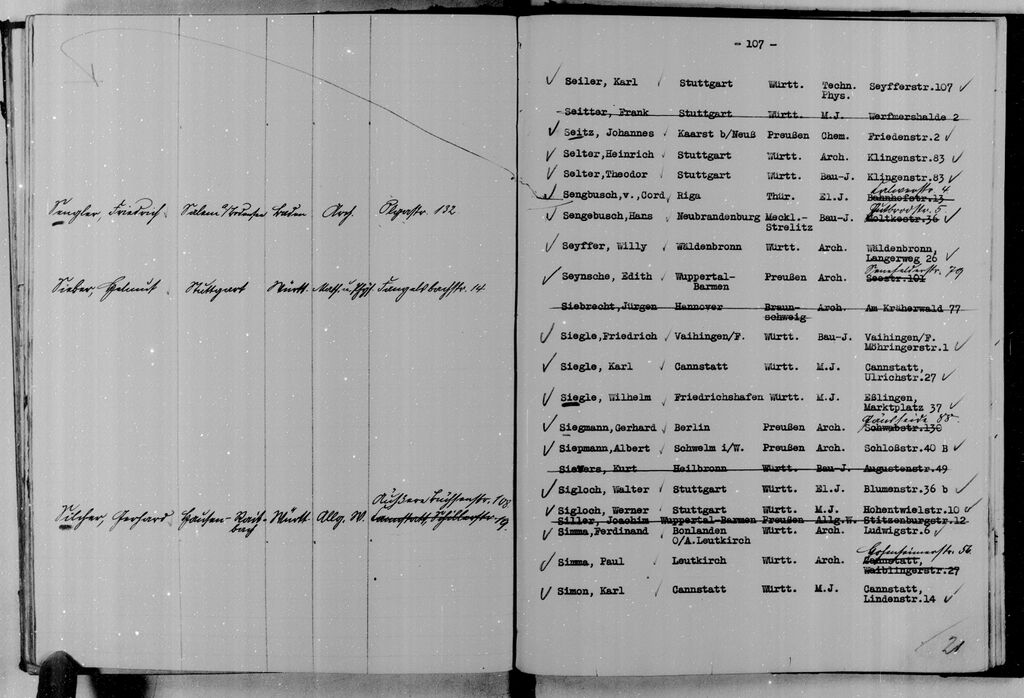 Sengler, Friedrich Salem Baden Arch. Olgastr. 132
Sieber, Helmut Stuttgart Württ. Math. u. Phys. Fangelsbachstr. 14
Äußere
Silcher, Gerhard Hausen Württ. Allg. W. Cannstatt,
- 107 -
Seiler, Karl Stuttgart Württ. Techn. Seyfferstr.107
Phys.
Seitter, Frank Stuttgart Württ. M.J. Werfmershalde 2
Seitz, Johannes Kaarst b/Neuß Preußen Chem. Friedenstr.2
Selter,Heinrich Stuttgart Württ. Arch. Klingenstr.83
Selter,Theodor Stuttgart Württ. Bau-J. Klingenstr.83
Calwerstr. 4
Sengbusch,v.,Cord Riga Thür. El.J. Bahnhofstr.13
Gutbrodstr. 5
Sengebusch,Hans Neubrandenburg Meckl.- Bau-J. Moltkestr.36
Strelitz
Seyffer, Willy Wäldenbronn Württ. Arch. Wäldenbronn,
Langerweg 26
Senefelderstr. 79
Seynsche, Edith Wuppertal- Preußen Arch. Seestr.101
Barmen
Siebrecht,Jürgen Hannover Braun- Arch. Am Kräherwald 77
schweig
Siegle,Friedrich Vaihingen/F. Württ. Bau-J. Vaihingen/F.
Möhringerstr.1
Siegle, Karl Cannstatt Württ. M.J. Cannstatt,
Ulrichstr.27
Siegle, Wilhelm Friedrichshafen Württ. M.J. Eßlingen,
Marktplatz 37
88
Siegmann,Gerhard Berlin Preußen Arch. Schwabstr.130
Siepmann,Albert Schwelm i/W. Preußen Arch. Schloßstr.40 B
Siewers, Kurt Heilbronn Württ. Bau-J. Augustenstr.49
Sigloch, Walter Stuttgart Württ. El.J. Blumenstr.36 b
Sigloch, Werner Stuttgart Württ. M.J. Hohentwielstr.10
Siller, Joachim Wuppertal-Barmen Preußen Allg.W. Stitzenburgstr.12
Simma,Ferdinand Bonlanden Württ. Arch. Ludwigstr.6
O/A.Leutkirch
Hohenheimerstr. 56
Simma, Paul Leutkirch Württ. Arch. Cannstatt,
Waiblingerstr.27
Simon, Karl Cannstatt Württ. M.J. Cannstatt,
Lindenstr.14
21